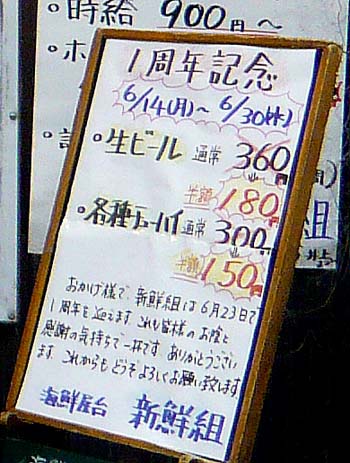 ・時給 900円〜
・ホ
1周年記念
6/14(月)〜6/30(水)
・生ビール 通常 360円
半額 180円
・各種チューハイ 通常 300円
半額 150円
おかげ様で、新鮮組は6月23日で
1周年を迎えます。これも皆様のお陰と
感謝の気持ちで一杯です。ありがとうござい
ます。これからもどうぞよろしくお願い致します。
海鮮屋台 新鮮組
組